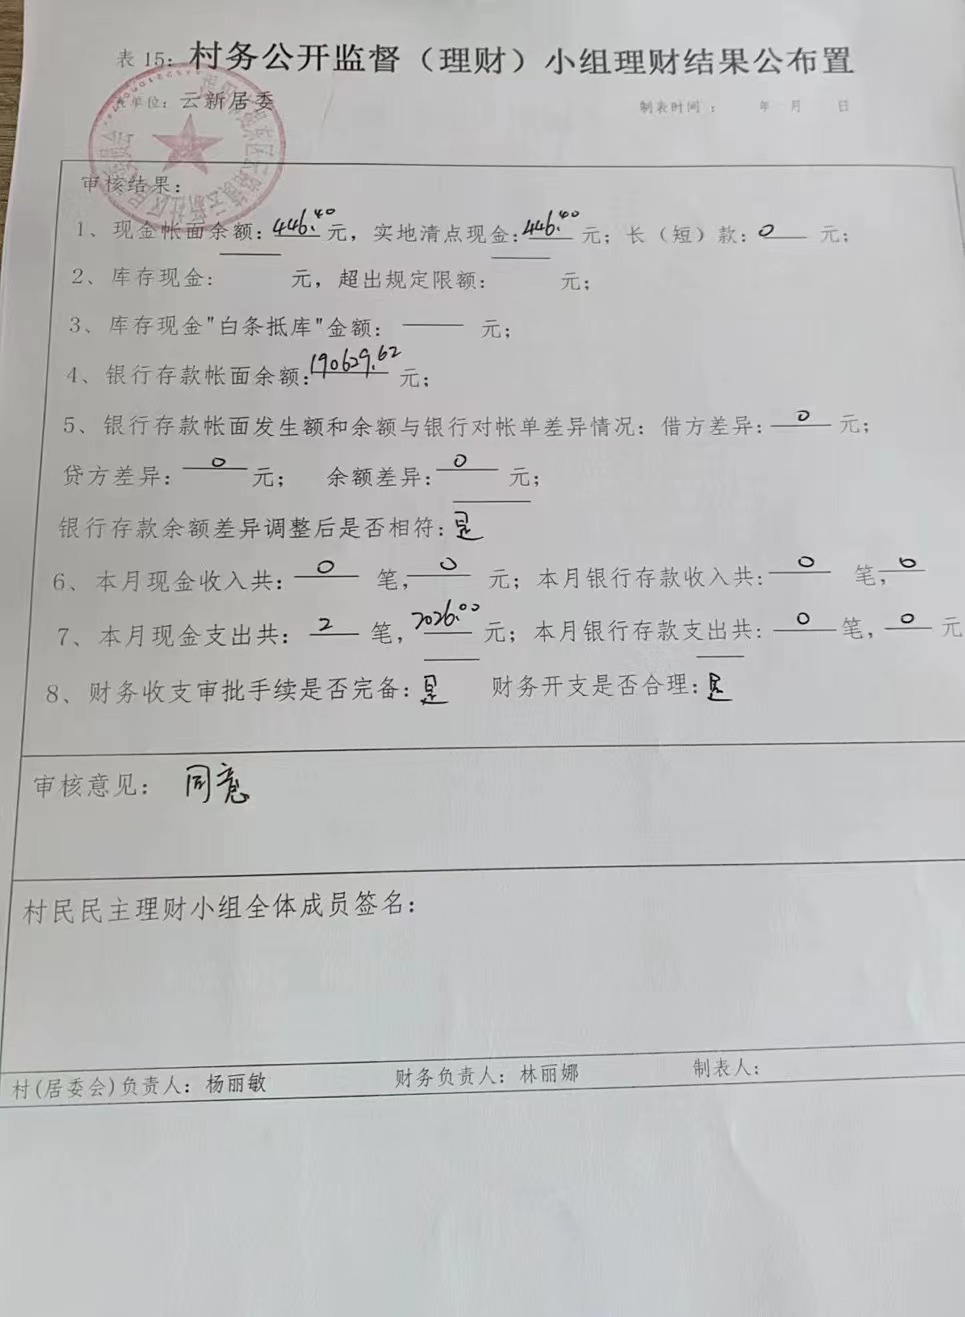 表 15：村务公开监督（理财）小组理财结果公布置
表单位：云新居委 制表时间： 年 月 日
审核结果：
1、现金帐面余额：446.40元，实地清点现金：446.40元；长（短）款：0元；
2、库存现金： 元，超出规定限额： 元；
3、库存现金"白条抵库"金额：—— 元；
4、银行存款帐面余额：190629.62元；
5、银行存款帐面发生额和余额与银行对帐单差异情况：借方差异：0元；
贷方差异：0元； 余额差异：0元；
银行存款余额差异调整后是否相符：是
6、本月现金收入共：0笔，0元；本月银行存款收入共：0笔，0
7、本月现金支出共：2笔，2026.00元；本月银行存款支出共：0笔，0元
8、财务收支审批手续是否完备：是 财务开支是否合理：是
审核意见：同意
村民民主理财小组全体成员签名：
村(居委会)负责人：杨丽敏 财务负责人：林丽娜 制表人：